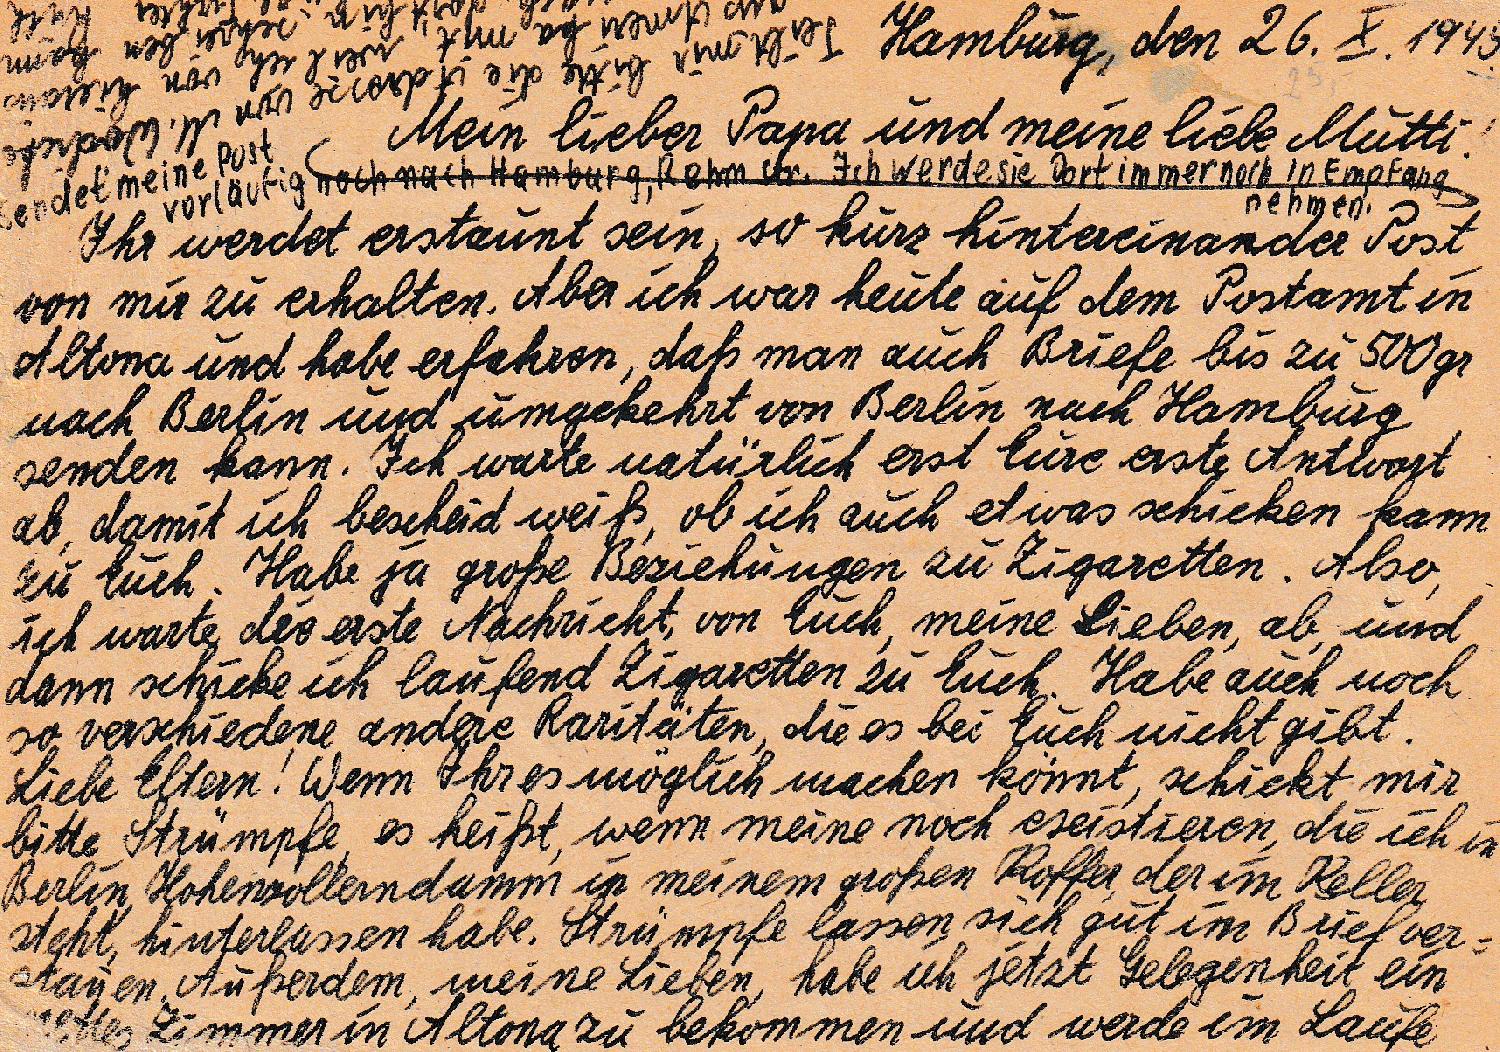 Hamburg, den 26. X. 1945.
Mein lieber Papa und meine liebe Mutti!
Sendet meine Post
vorläufig noch nach Hamburg, Rehm str. Ich werde sie Dort immer noch in Empfang
nehmen.
Ihr werdet erstaunt sein, so kurz hintereinander Post
von mir zu erhalten. Aber ich war heute auf dem Postamt in
Altona und habe erfahren, daß man auch Briefe bis zu 500 gr
nach Berlin und umgekehrt von Berlin nach Hamburg
senden kann. Ich warte natürlich erst Eure erste Antwort
ab, damit ich bescheid weiß, ob ich auch etwas schicken kann
zu Euch. Habe ja große Beziehungen zu Zigaretten. Also,
ich warte die erste Nachricht, von Euch, meine Lieben, ab, und
dann schicke ich laufend Zigaretten zu Euch. Habe auch noch
so verschiedene andere Raritäten, die es bei Euch nicht gibt.
Liebe Eltern! Wenn Ihr es möglich machen könnt, schickt mir
bitte Strümpfe, es heißt, wenn meine noch exsistieren, die ich in
Berlin, Hohenzollerndamm in meinem großen Koffer, der im Keller
steht, hinterlassen habe. Strümpfe lassen sich gut im Brief ver=
stauen. Außerdem, meine Lieben, habe ich jetzt Gelegenheit ein
nettes Zimmer in Altona zu bekommen und werde im Laufe
Teilt mir bitte die Adresse von M.
weil ich von hieraus
schreiben kann